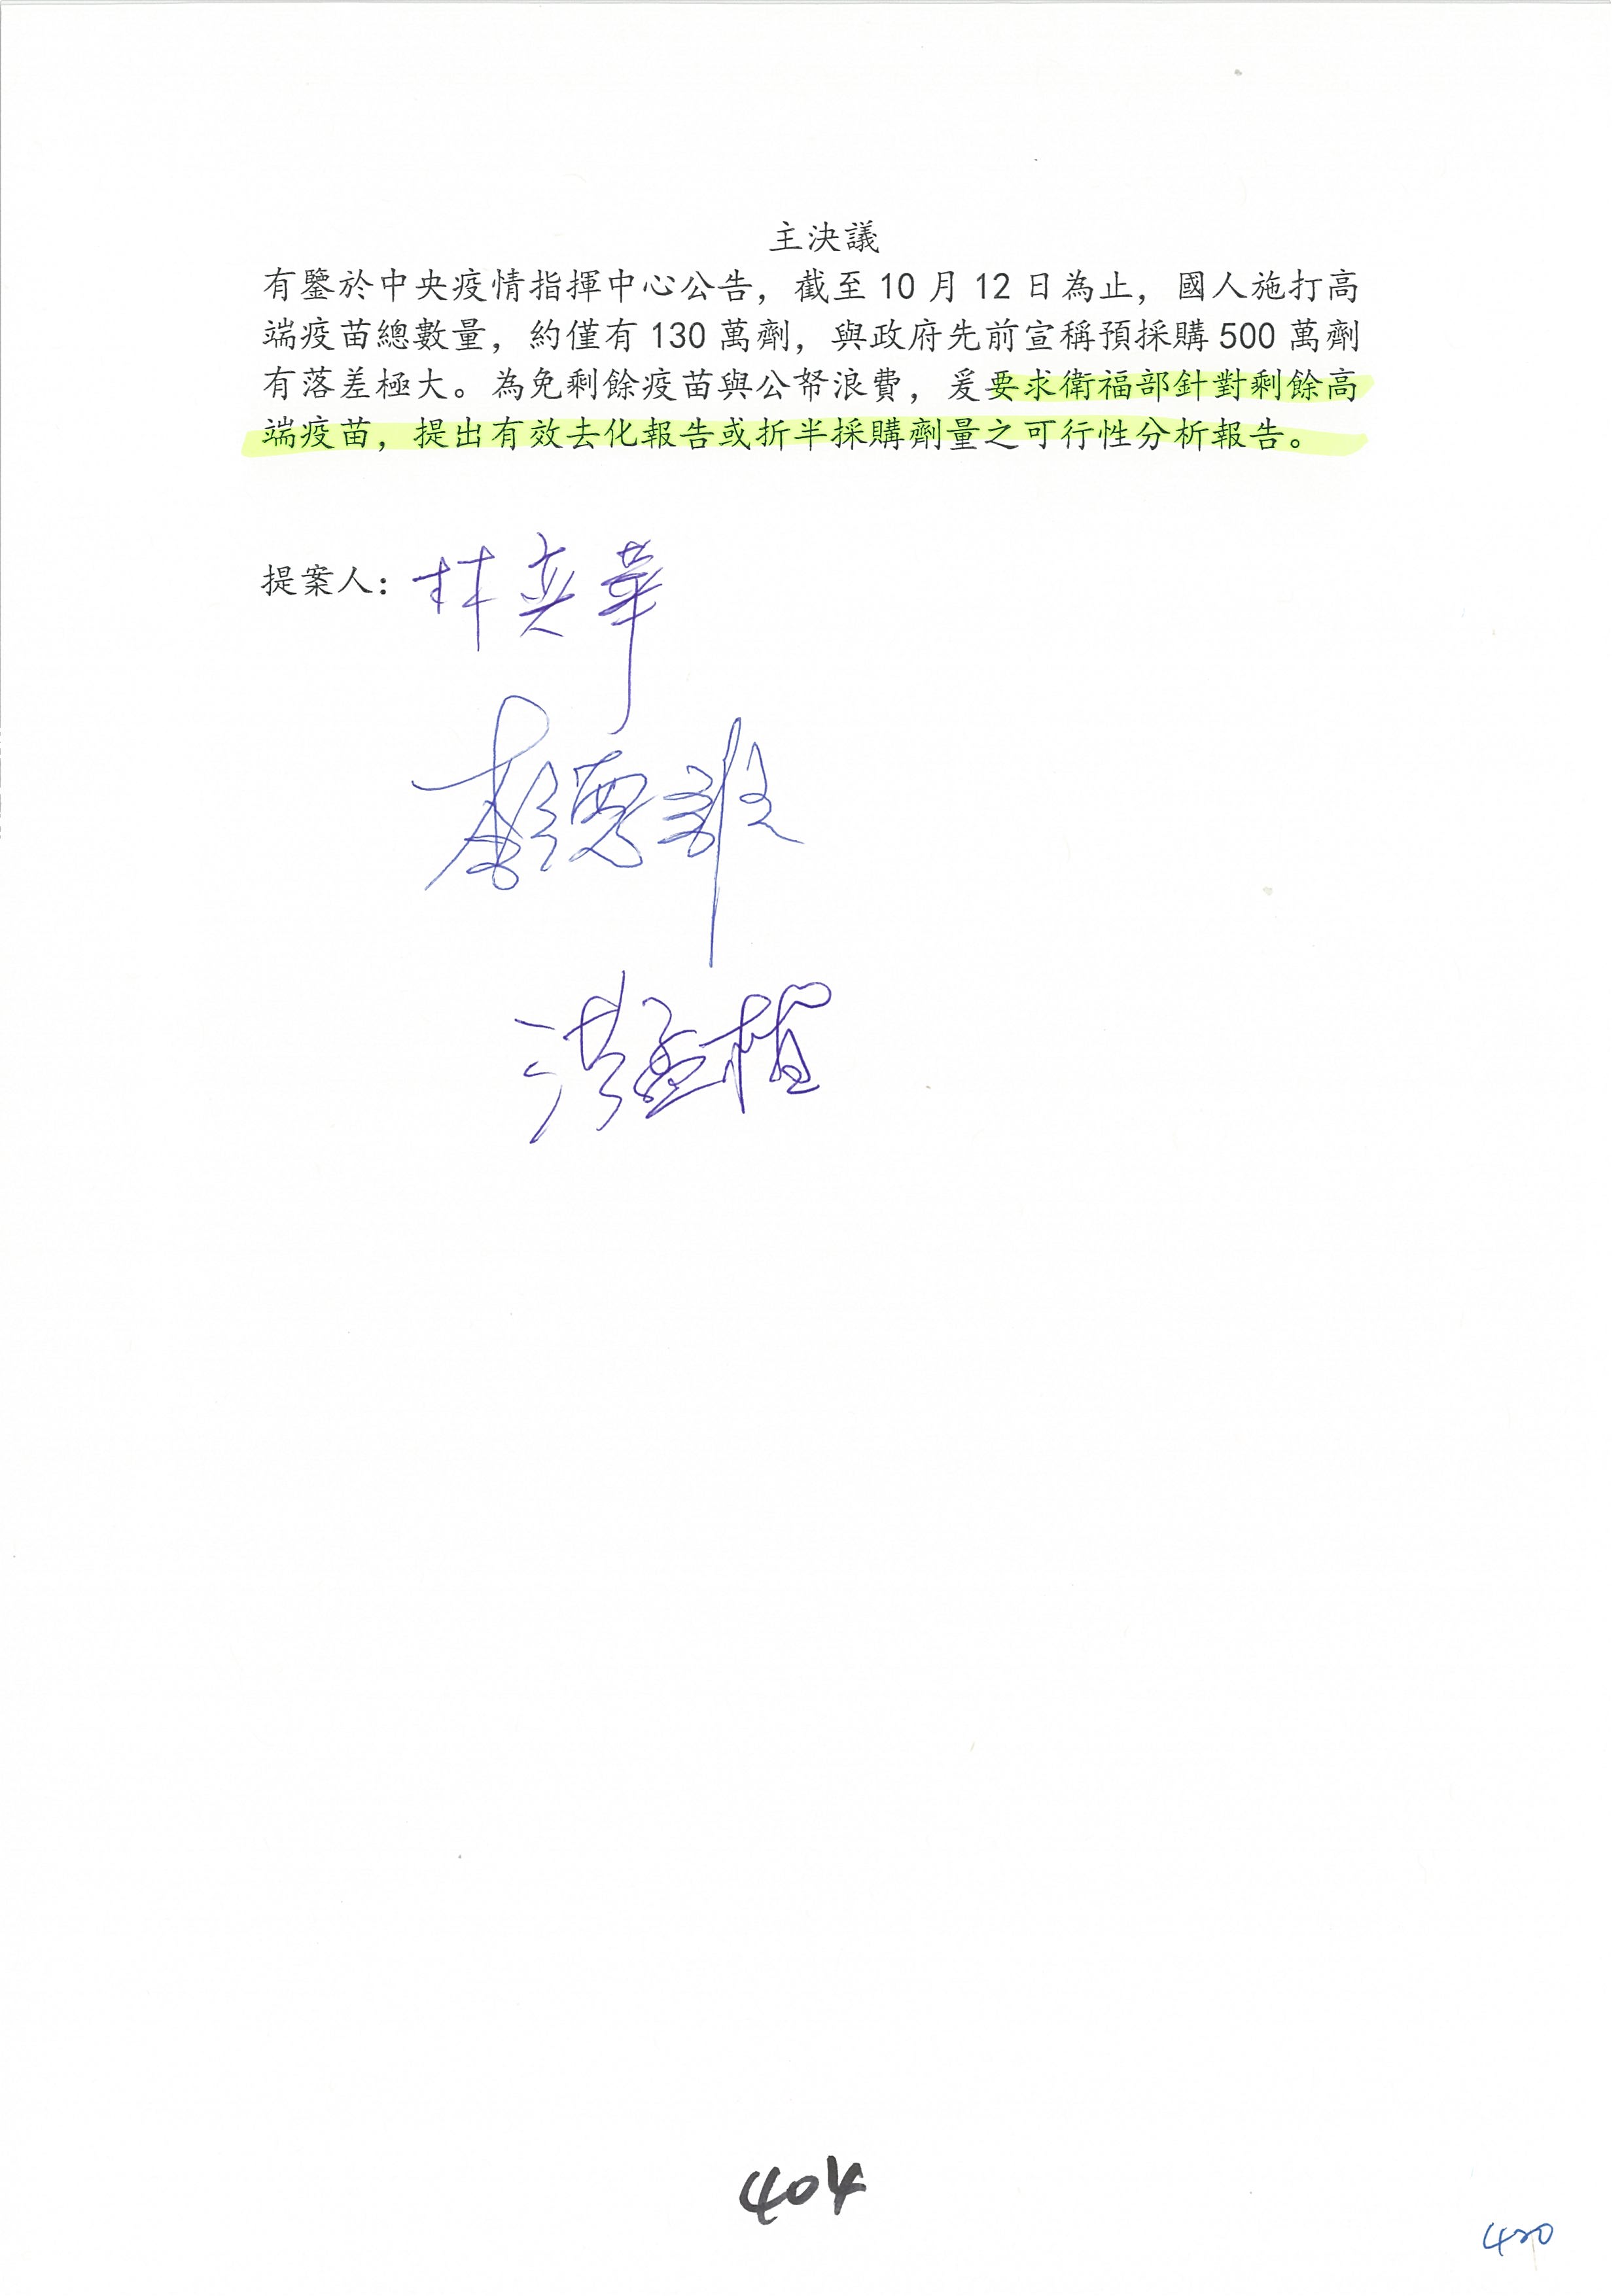 主決議
有鑒於中央疫情指揮中心公告，截至 10 月 12 日為止，國人施打高
端疫苗總數量，約僅有 130 萬劑，與政府先前宣稱預採購 500 萬劑
有落差極大。為免剩餘疫苗與公帑浪費，爰要求衛福部針對剩餘高
端疫苗，提出有效去化報告或折半採購劑量之可行性分析報告。
提案人：林奕華
洪孟楷
404
420